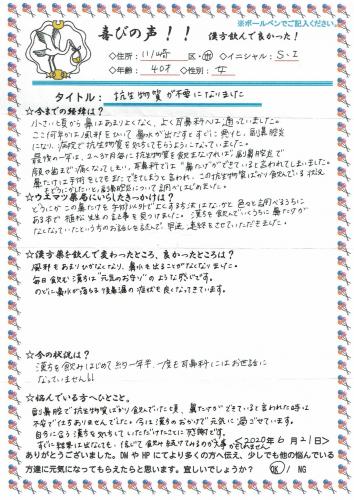 ※ボールペンでご記入ください。
喜びの声！！ 漢方飲んで良かった！
◇住所：川崎 区・市 ◇イニシャル：S・I
◇年齢：40才 ◇性別：女
タイトル：抗生物質が不要になりました
☆今までの経緯は？
小さい頃から鼻はあまりよくなく、よく耳鼻科へは通っていました。
ここ何年かは風邪をひいて鼻水が出だすとすぐに悪化し、副鼻腔炎
になり、病院で抗生物質を処方してもらうようになっていました。
最後の一年は、2～3ヶ月毎に抗生物質を飲まなければ副鼻腔炎で
顔や歯まで痛くなってしまい、耳鼻科では“鼻たけができている”と言われてしまいました。
鼻たけは手術をしてもまたできてしまうと言われ、この抗生物質ばかり飲んでいる状況
をどうにかしたいと副鼻腔炎について調べはじめました。
☆ウエマツ薬局にいらしたきっかけは？
どうにかこの鼻たけを手術以外でよくする方法はないかと色々と調べるうちに
ある本で植松先生の記事を見つけました。漢方を飲んでいくうちに鼻たけが
なくなっていたというお話しを読んで、早速連絡をさせていただきました。
☆漢方薬を飲んで変わったところ、良かったところは？
風邪をあまりひかなくなり、鼻水も出ることがなくなりました。
毎日飲む漢方は“元気のお守り”のような感じです。
のどに鼻水が落ちる後鼻漏の症状も良くなってきています。
☆今の状況は？
漢方を飲みはじめて約一年半、一度も耳鼻科にはお世話に
なっていません!!
☆悩んでいる方へひとこと。
副鼻腔炎で抗生物質ばかり飲んでいた頃、鼻たけができていると言われた時は
不安で仕方ありませんでした。今は漢方のおかげで元気に過ごせています。
自分に合う漢方を処方していただけたことに感謝です。
すぐに結果は出なくても、信じて飲み続けてみるのが大事かもしれません。
<2020年 6月 2日>
ありがとうございました。DMやHPにてより多くの方へ伝え、少しでも他の悩んでいる
方達に元気になってもらえたらと思います。宜しいでしょうか？ OK / NG